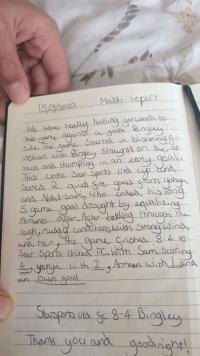 15/3/2020 Match report
We have really looking forward to
this game against a good Bingley
side. The game started in blistering
fashion with Bingley straight on the
and thumping in an early goal.
This woke Star Spots utd up and
scored 2 quick fire goals from Yahya
and Abdul samy who ended his long
5 game goal drought by equalizing
Moments after. Later battling through the
tough, muddy conditions with strong winds
and rain, the game finished 8-4 to
Star Sports United FC. With Sam Scoring
4, Yahya with 2, Armaan with 1 and
an own goal
Starsports utd fc 8-4 Bingley
Thank you and goodnight!